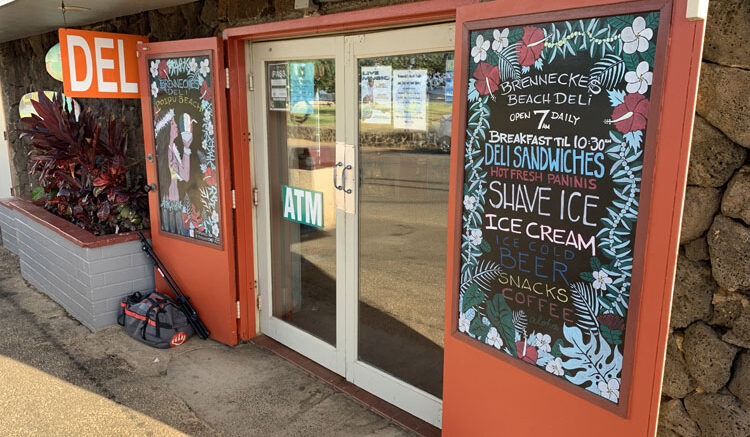 DELI
BRENNECKE'S
DELI
POIPU BEACH
ATM
BRENNECKE'S
BEACH DELI
OPEN 7AM DAILY
BREAKFAST TIL 10:30AM
DELI SANDWICHES
HOT FRESH PANINIS
SHAVE ICE
ICE CREAM
ICE COLD
BEER
SNACKS
COFFEE